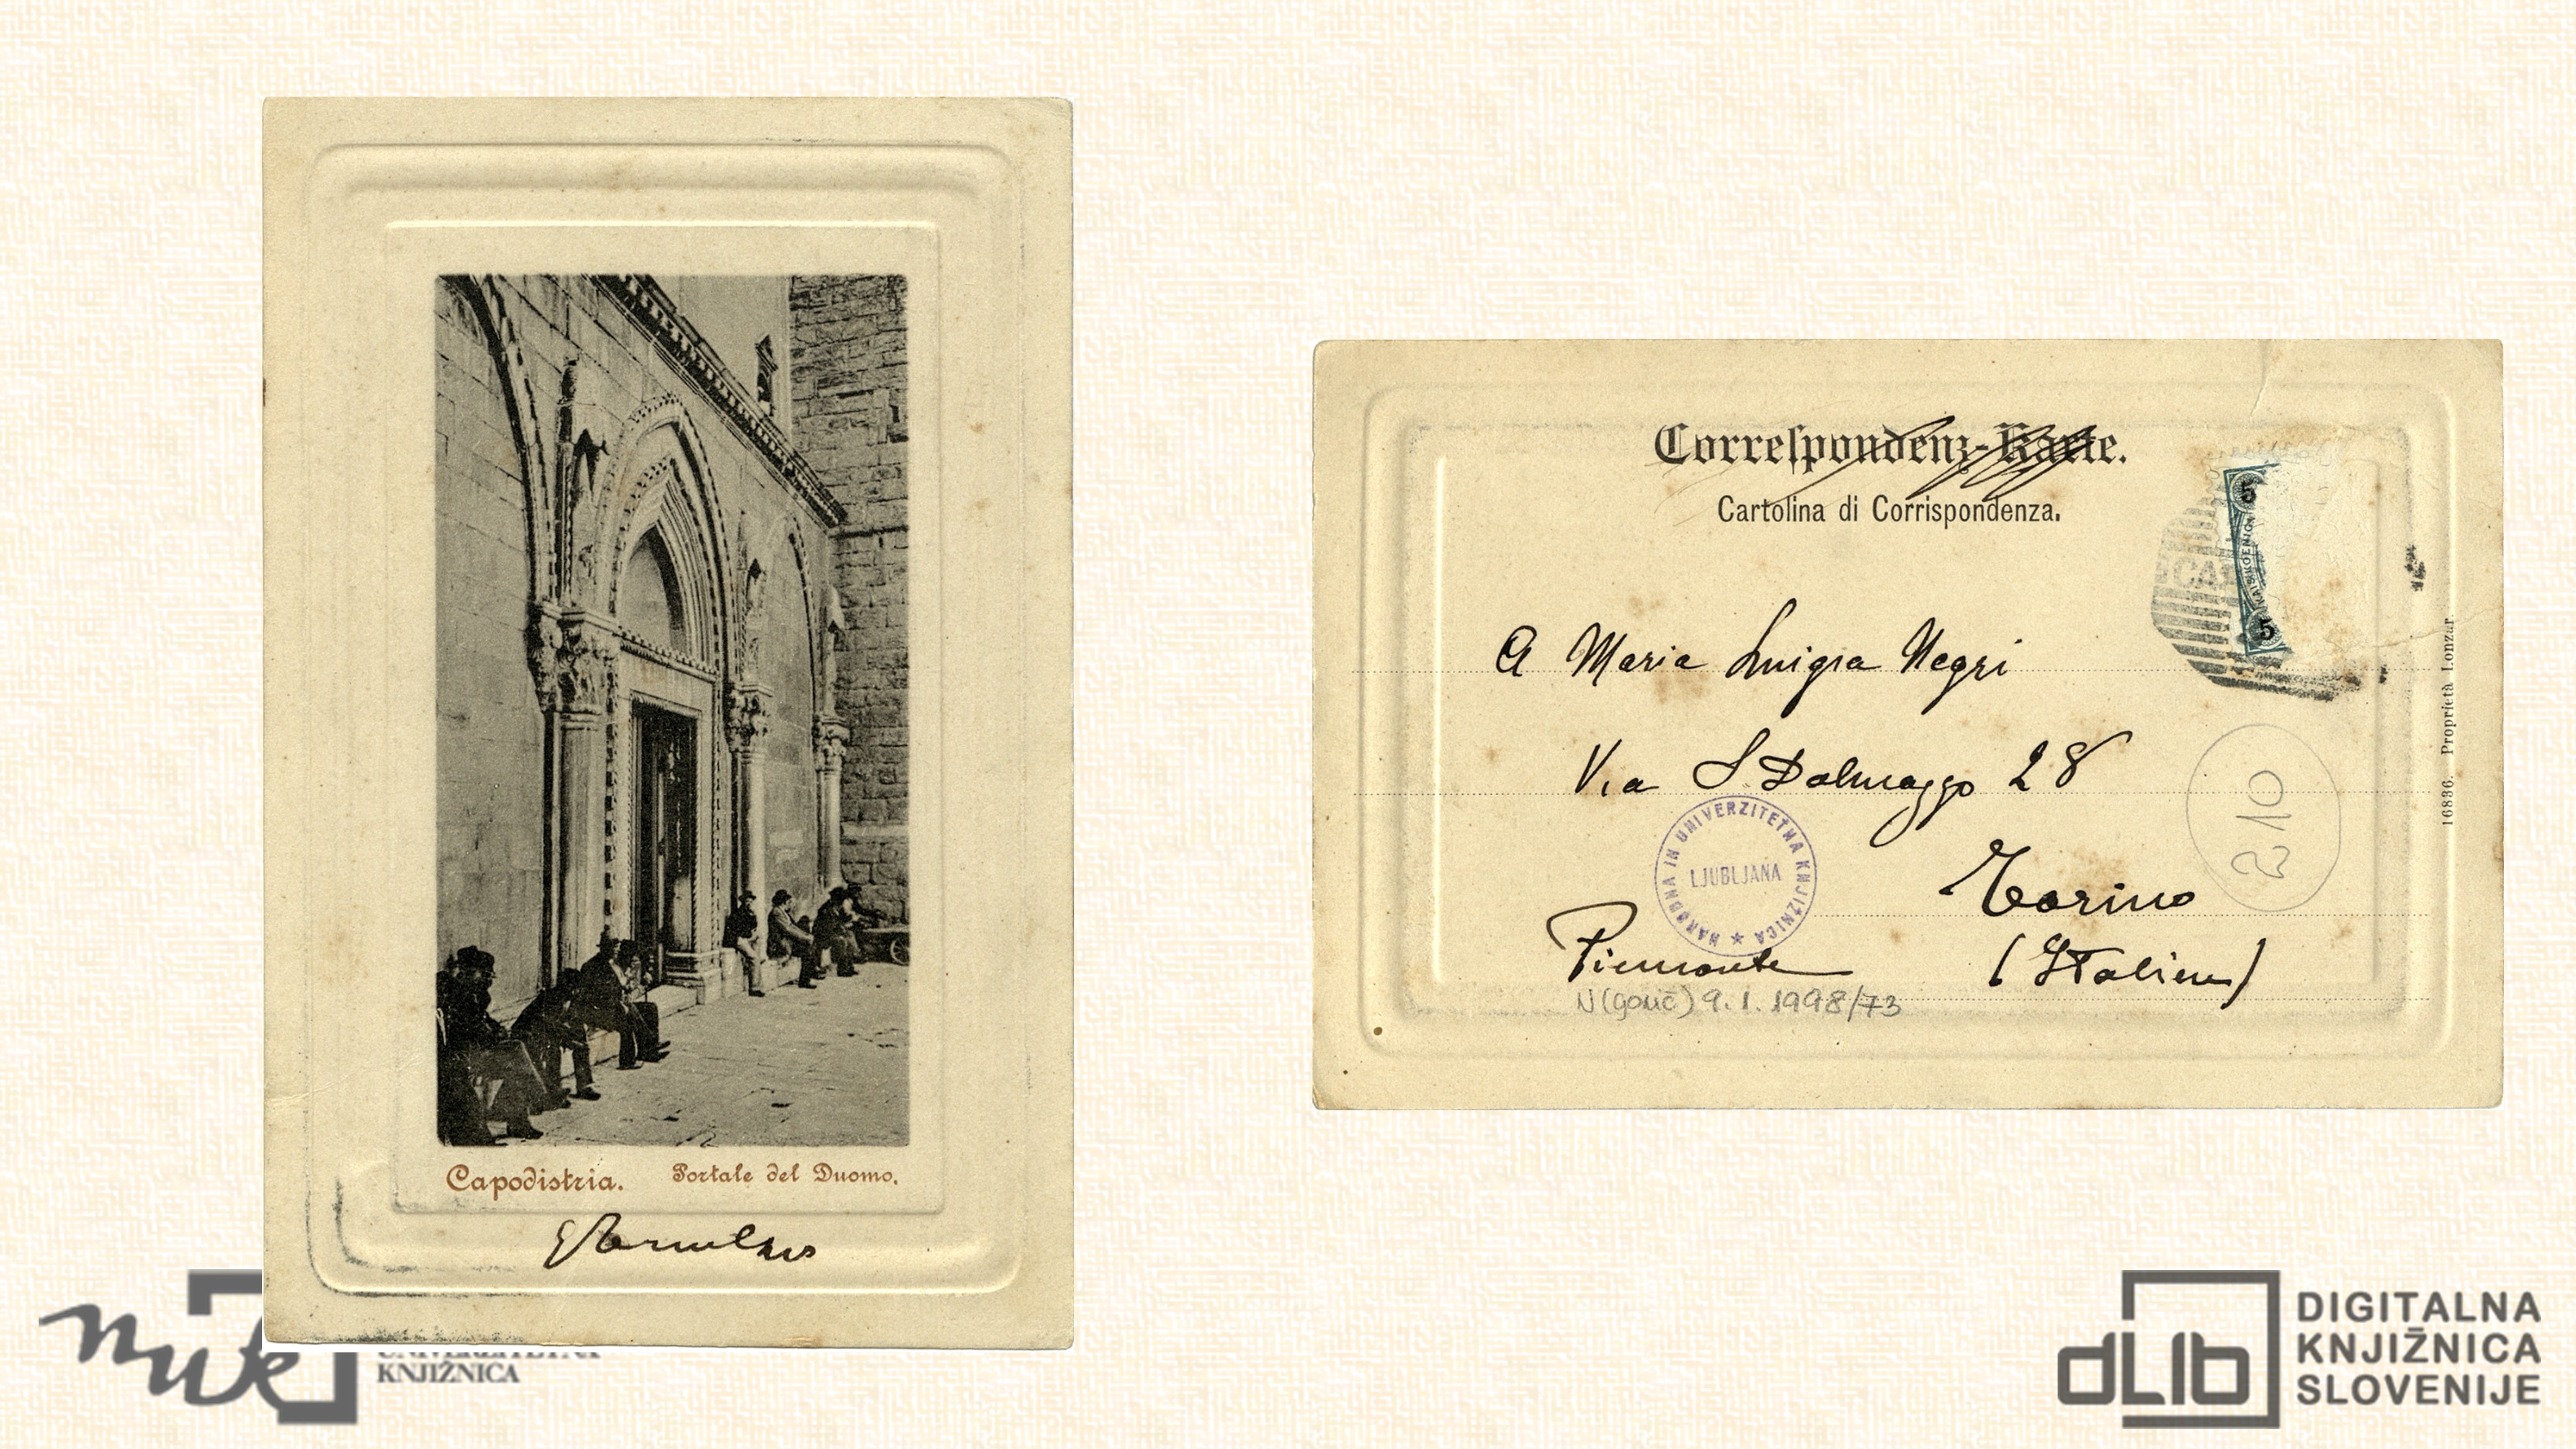 Capodistria. Portale del Duomo.
Correspondenz-Karte.
Cartolina di Corrispondenza.
5
5
CA
A Maria Luigia Negri
Via S Dalmazzo 28
Torino
Piemonte (Italien)
NARODNA IN UNIVERZITETNA KNJIŽNICA
LJUBLJANA
N(gorič) 9. 1. 1998/73
210
16836. Proprietà Lonzar.
nuk
UNIVERZITETNA
KNJIŽNICA
dLib
DIGITALNA
KNJIŽNICA
SLOVENIJE